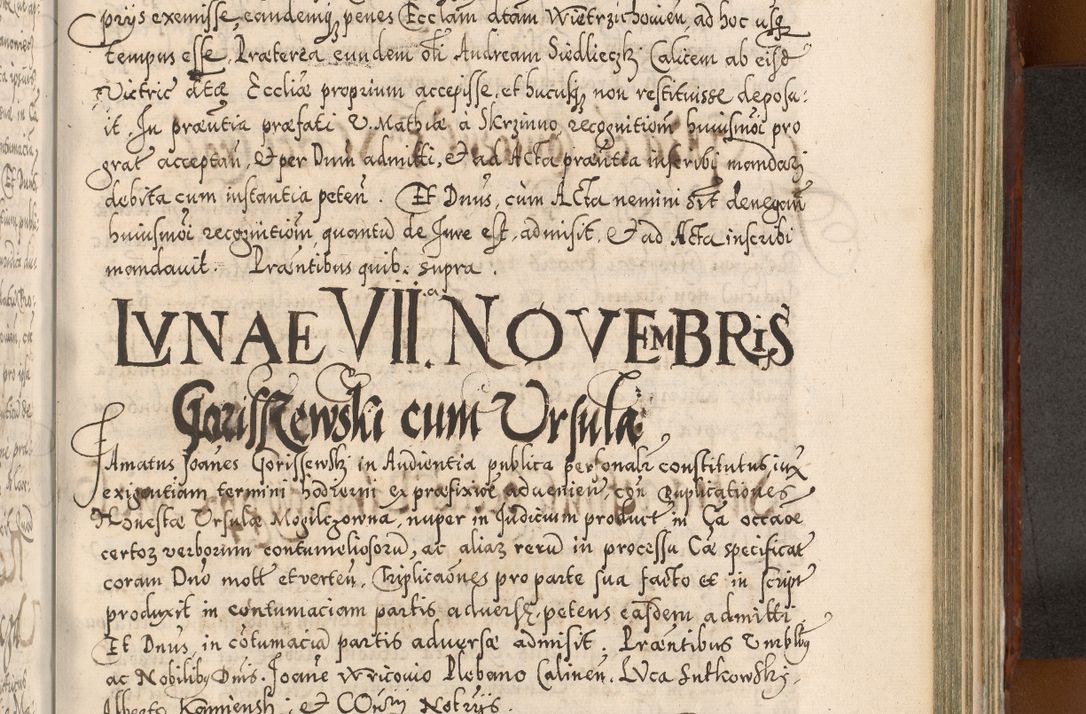 prijs exemisse, eandemq penes Ecclam dtam Wietrzichouien, ad hoc usq
tempus esse. Præterea eundem olī Andream Siedlieczkj Calicem ab eisd
Vietric dtæ Eccliæ proprium accepisse, et hucusq non restituisse deposu:
it. In præntia præfati V. Mathiæ à Skrzinno, recognitiom huiusmoi pro
grat acceptan, & per Dnum admitti, & ad Acta præntia inscribi mandarj
debita cum instantia peten. Et Dnus, cum Acta nemini sīt denegan
huiusmoi recognitiom quantū de Jure est, admisit, & ad Acta inscribi
mandauit. Præntibus quib. supra.
LVNAE VII.a NOVEMBRIS
Gorisszewski cum Ursula
Famatus Joanes Gorissewskj in Audientia publica personalr constitutus, iux
exigentiam termini hodierni ex præfixioe aduenien, con Duplicationes
Honestæ Ursulæ Mogilczowna, nuper in Judicium product in Ca occaoe
certoz verborum contumeliosorū, ac aliaz rerū in processu Cæ specificat
coram Dno mott et verten, Triplicaones pro parte sua facto et in script
produxit in contumaciam partis aduersę, petens easdem admitti.
Et Dnus, in cōtumaciā partis aduersæ admisit. Præntibus Vnrblby
ac Nobiliby Dnis. Joane Wricouio Plebano Calinen. Lvca Lutkowskj,
Alberto Kamienskj, & Conrij Notrijs.